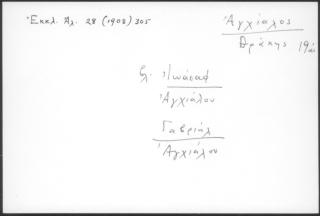 Ἐκκλ. Ἀλ. 28 (1908) 305
Ἀγχίαλος
Θράκης 19αι
βλ. Ἰωάσαφ
Ἀγχιάλου
Γαβριήλ
Ἀγχιάλου